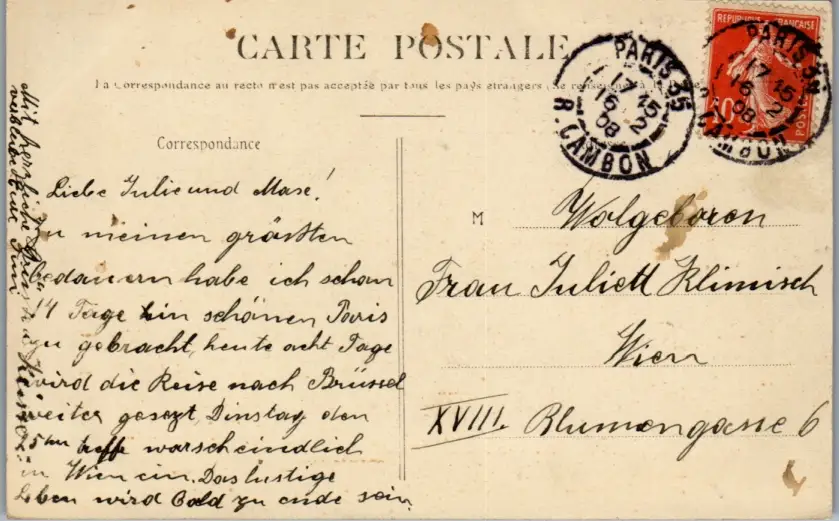 CARTE POSTALE
La Correspondance au recto n'est pas acceptée par tous les pays étrangers (Se renseigner à la
Correspondance
Liebe Julie und Mase!
Zu meinen grössten
bedauern habe ich schon
14 Tage in schönen Paris
zu gebracht, heute acht Tage
wird die Reise nach Brüssel
weiter gesezt, Dinstag den
5ten treffe warscheindlich
in Wien ein. Das lustige
Leben wird bald zu ende sein.
Mit herzliche
REPUBLIQUE FRANÇAISE
10c
POSTES
PARIS 35
17 15
16 2
08
R. CAMBON
PARIS 35
17 15
16 2
08
R. CAMBON
M
Wolgeboren
Frau Juliett Klimisch
Wien
XVIII. Blumengasse 6